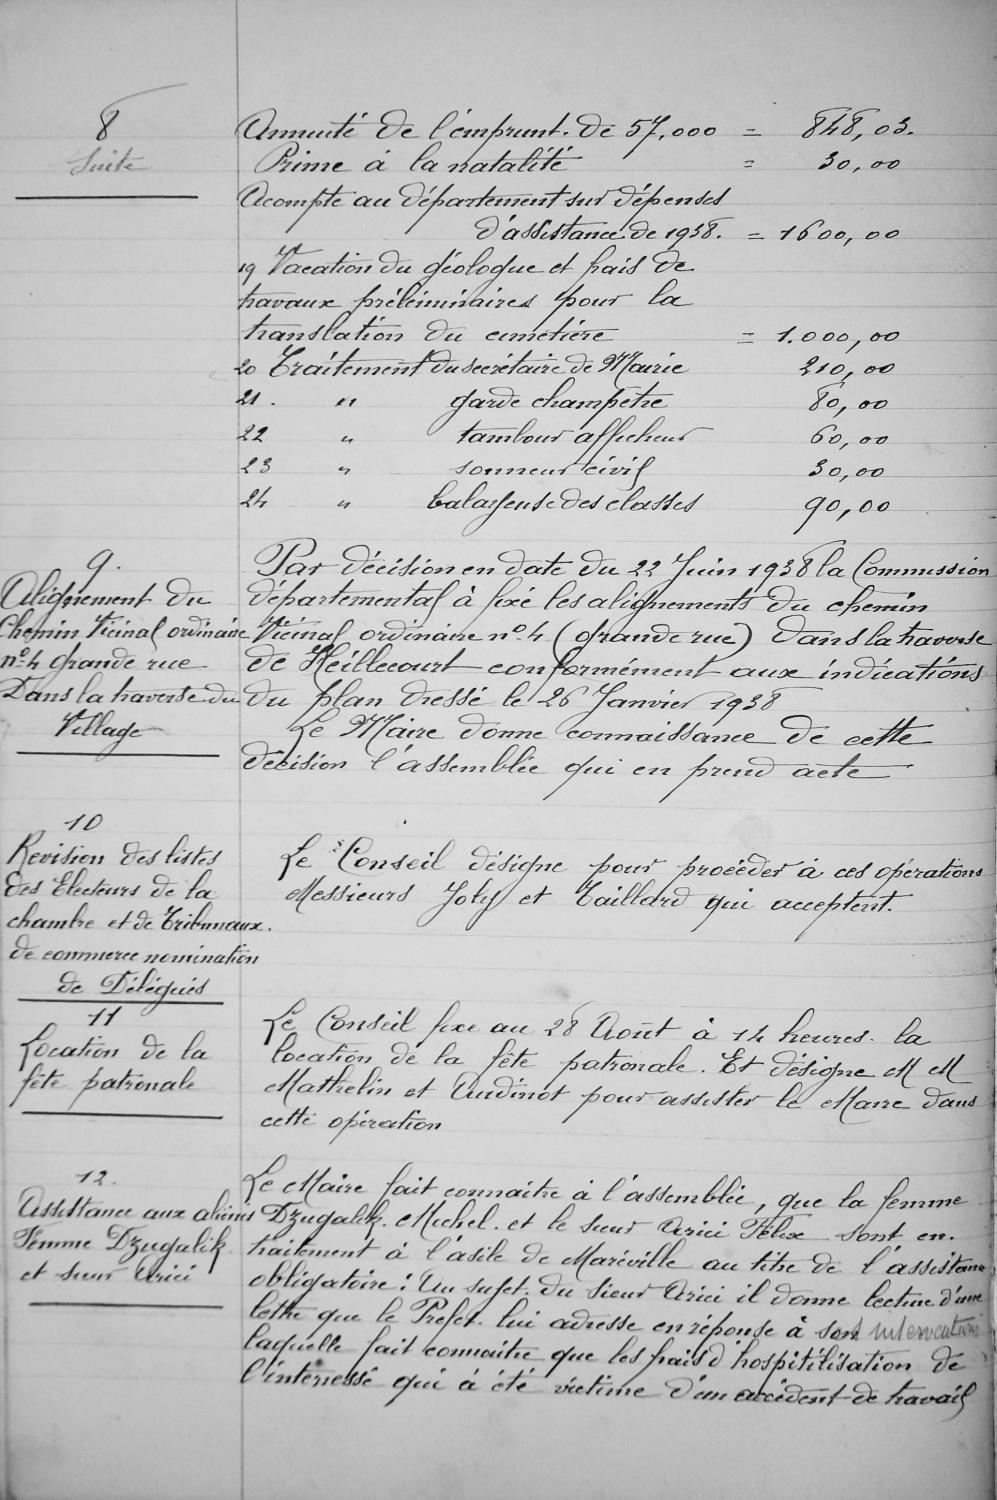 8
Suite
Annuité de l'emprunt. de 57,000 = 848,03.
Prime à la natalité = 30,00
Acompte au département sur dépenses
d'assistance de 1938. = 1600,00
19 Vacation du géologue et frais de
travaux préliminaires pour la
translation du cimetière = 1.000,00
20 Traitement du secrétaire de Mairie 210,00
21. " garde champêtre 80,00
22 " tambour afficheur 60,00
23 " sonneur civil 30,00
24 " balayeuse des classes 90,00
9.
Alignement du
Chemin Vicinal ordinaire
n° 4 grande rue
Dans la traverse du
Village
Par décision en date du 22 Juin 1938 la Commission
départemental à fixé les alignements du chemin
Vicinal ordinaire n° 4 (grande rue) dans la traverse
de Heillecourt conformément aux indications
du plan dressé le 26 Janvier 1938
Le Maire donne connaissance de cette
décision l'assemblée qui en prend acte
10
Revision des listes
des Electeurs de la
chambre et de Tribunaux.
de commerce nomination
de Délégués
Le Conseil désigne pour procéder à ces opérations
Messieurs Joly et Taillard qui acceptent.
11
Location de la
fête patronale
Le Conseil fixe au 28 Août à 14 heures. la
location de la fête patronale. Et désigne M M
Mathelin et Audinot pour assister le Maire dans
cette opération
12.
Assistance aux aliénés
Femme Dzugalik
et sieur Arici
Le Maire fait connaitre à l'assemblée, que la femme
Dzugalik. Michel. et le sieur Arici Félix sont en.
traitement à l'asile de Maréville au titre de l'assistance
obligatoire: Au sujet. du sieur Arici il donne lecture d'une
lettre que le Préfet. lui adresse en réponse à son intervention
laquelle fait connaitre que les frais d'hospitilisation de
l'interressé qui à été victime d'un accident de travail